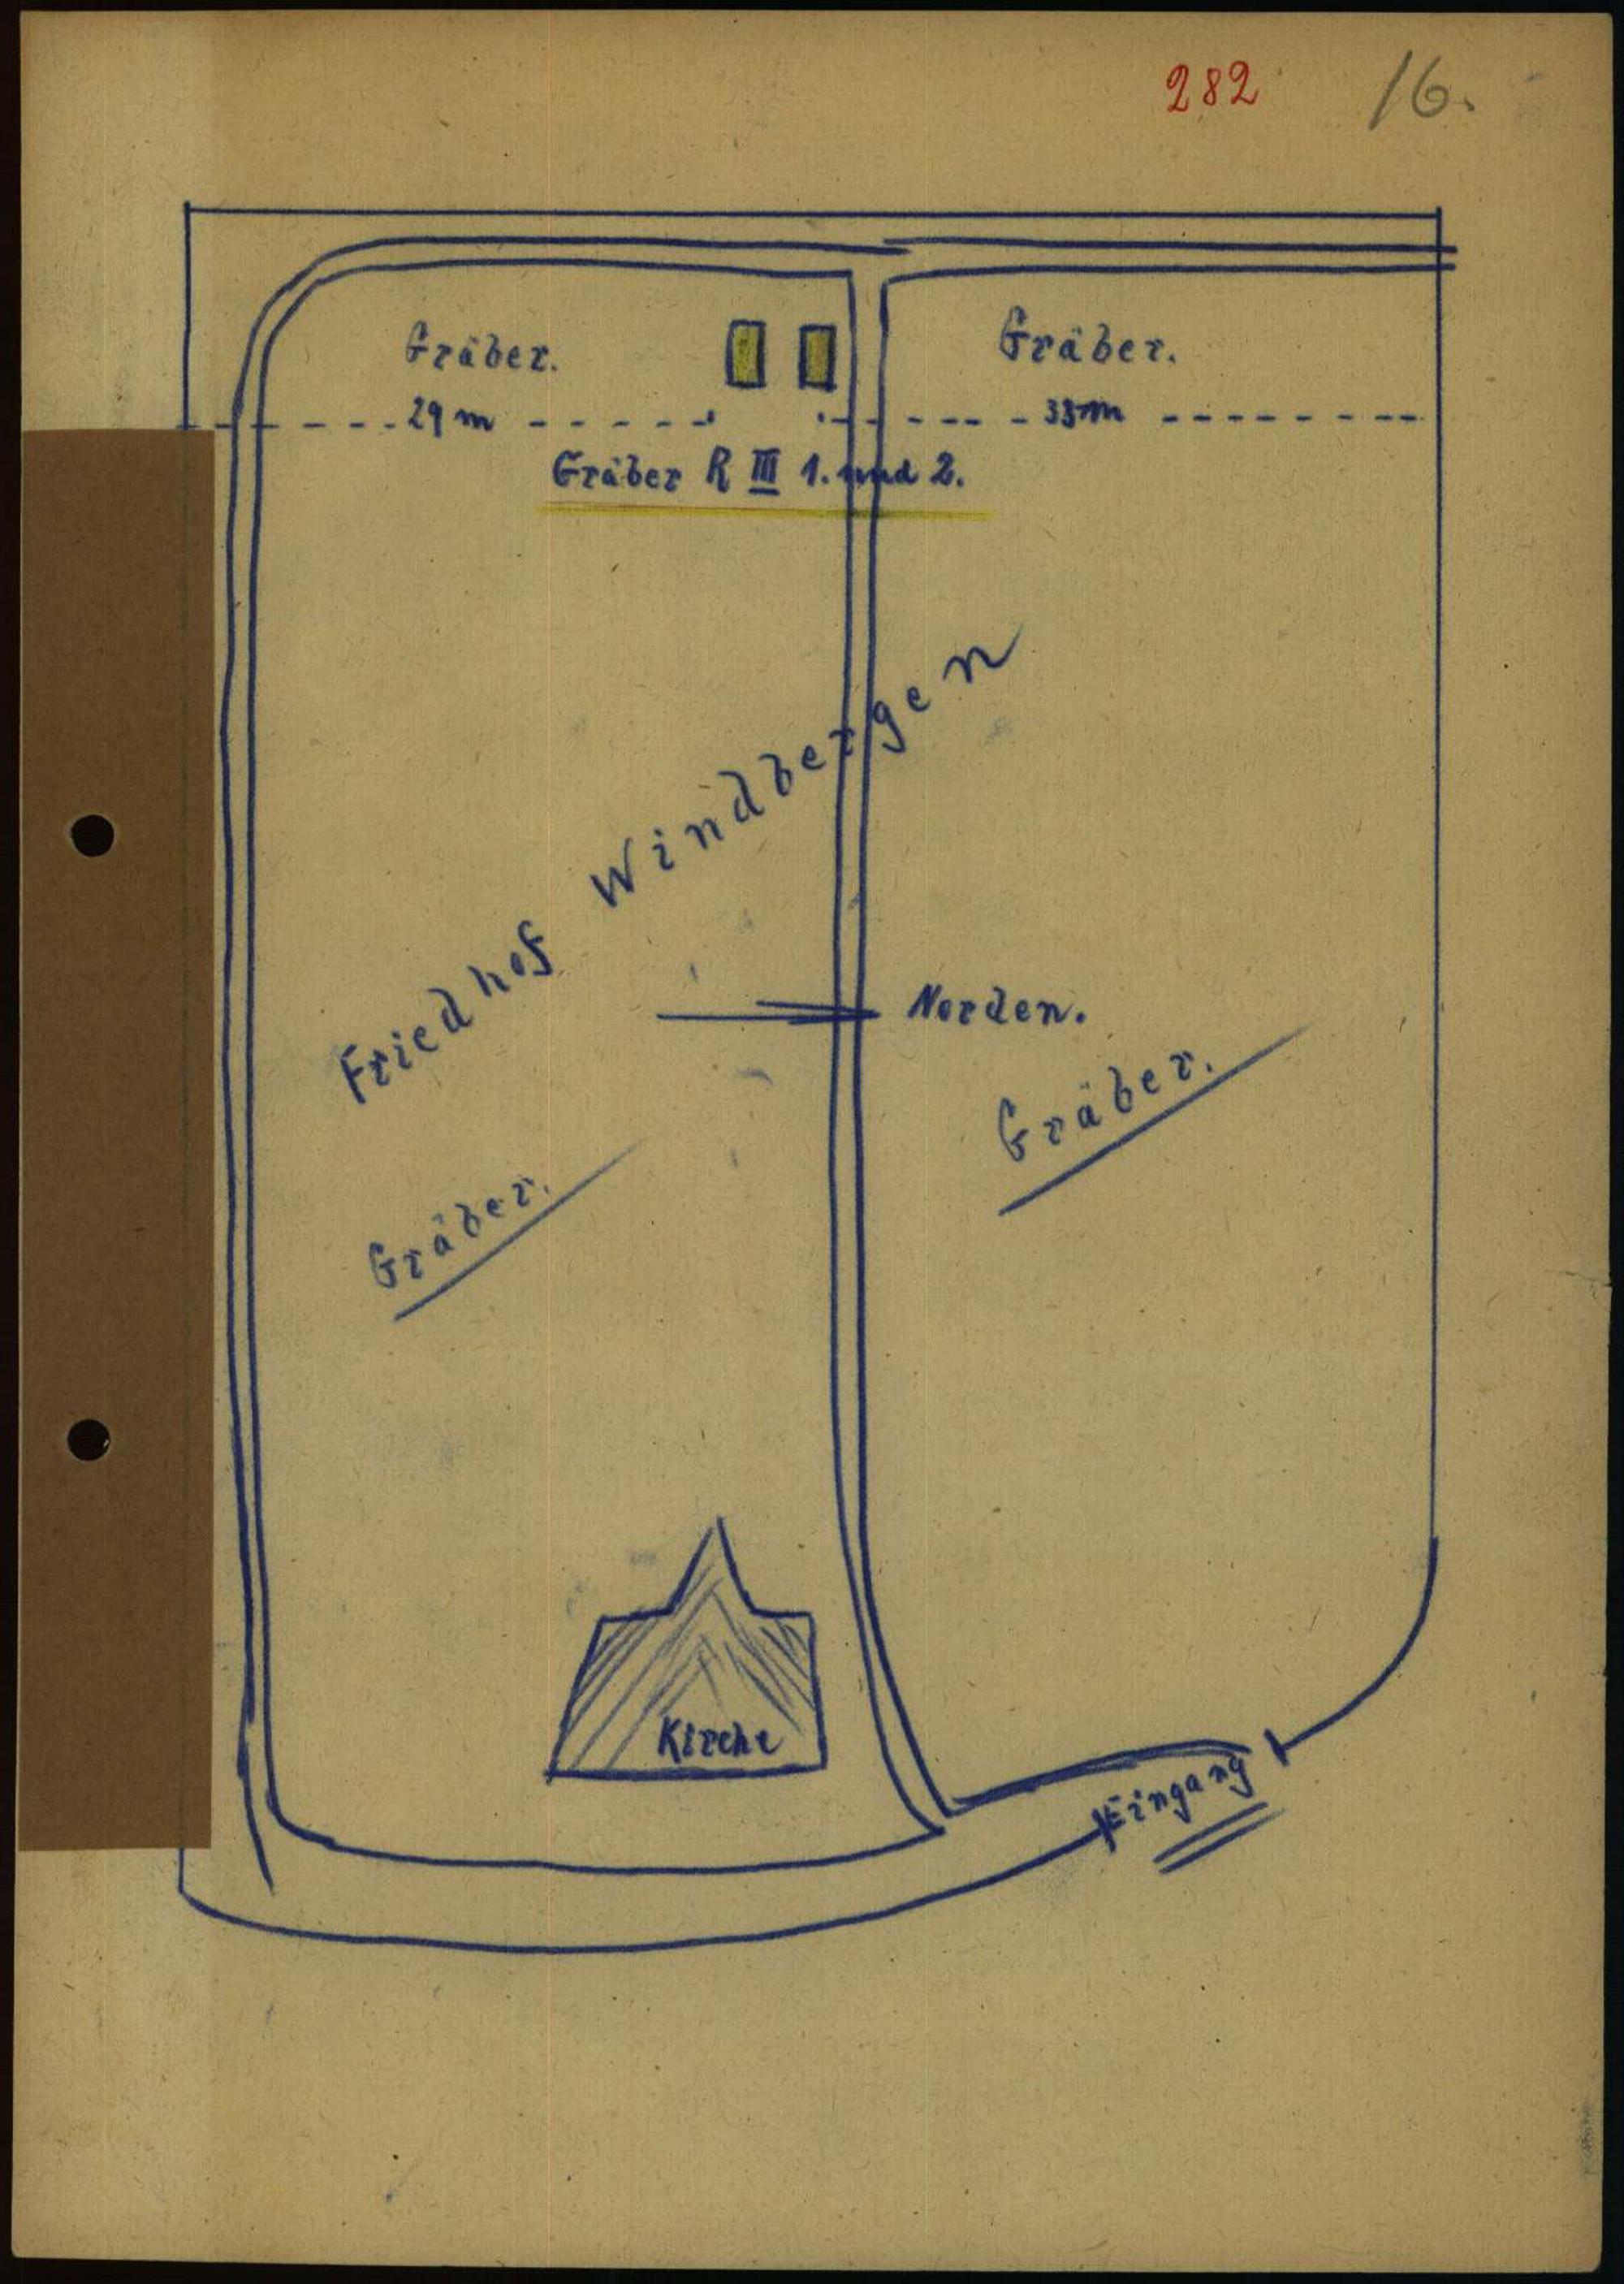 282 16.
Gräber. Gräber.
29 m 33 m
Gräber R III 1. und 2.
Friedhof Windbergen
Norden.
Gräber.
Gräber.
Kirche
Eingang